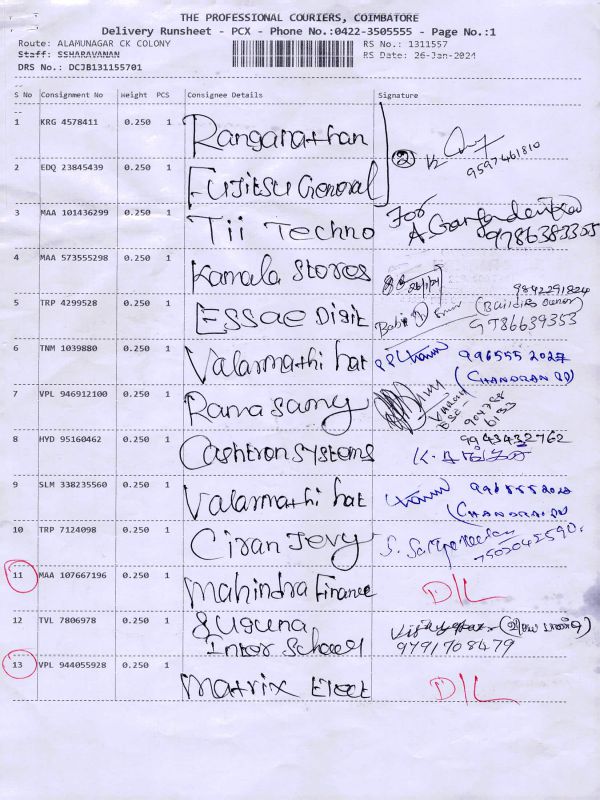 THE PROFESSIONAL COURIERS, COIMBATORE
Delivery Runsheet - PCX - Phone No.:0422-3505555 - Page No.:1
Route: ALAMUNAGAR CK COLONY RS No.: 1311557
Staff: SSHARAVANAN RS Date: 26-Jan-2024
DRS No.: DCJB131155701
S No Consignment No Weight PCS Consignee Details Signature
1 KRG 4578411 0.250 1 Ranganathan
② 9597461810
2 EDQ 23845439 0.250 1 Fujitsu General
3 MAA 101436299 0.250 1 Tii Techno For
9786383355
4 MAA 573555298 0.250 1 Kamala Stores 26/1/24
9842291824
5 TRP 4299528 0.250 1 Essae Digit (Building owner)
9786639353
6 TNM 1039880 0.250 1 Valarmathi hat 996555 2027
(CHANDRAN
7 VPL 946912100 0.250 1 Ramasamy
9943432762
8 HYD 95160462 0.250 1 Cashtron Systems
9 SLM 338235560 0.250 1 Valarmathi hat
(CHANDRAN
10 TRP 7124098 0.250 1 Ciran Jevy
7502042590.
11 MAA 107667196 0.250 1 Mahindra Finance D/L
12 TVL 7806978 0.250 1 Suguna
Inter School 9791708479
13 VPL 944055928 0.250 1 Matrix Elect D/L